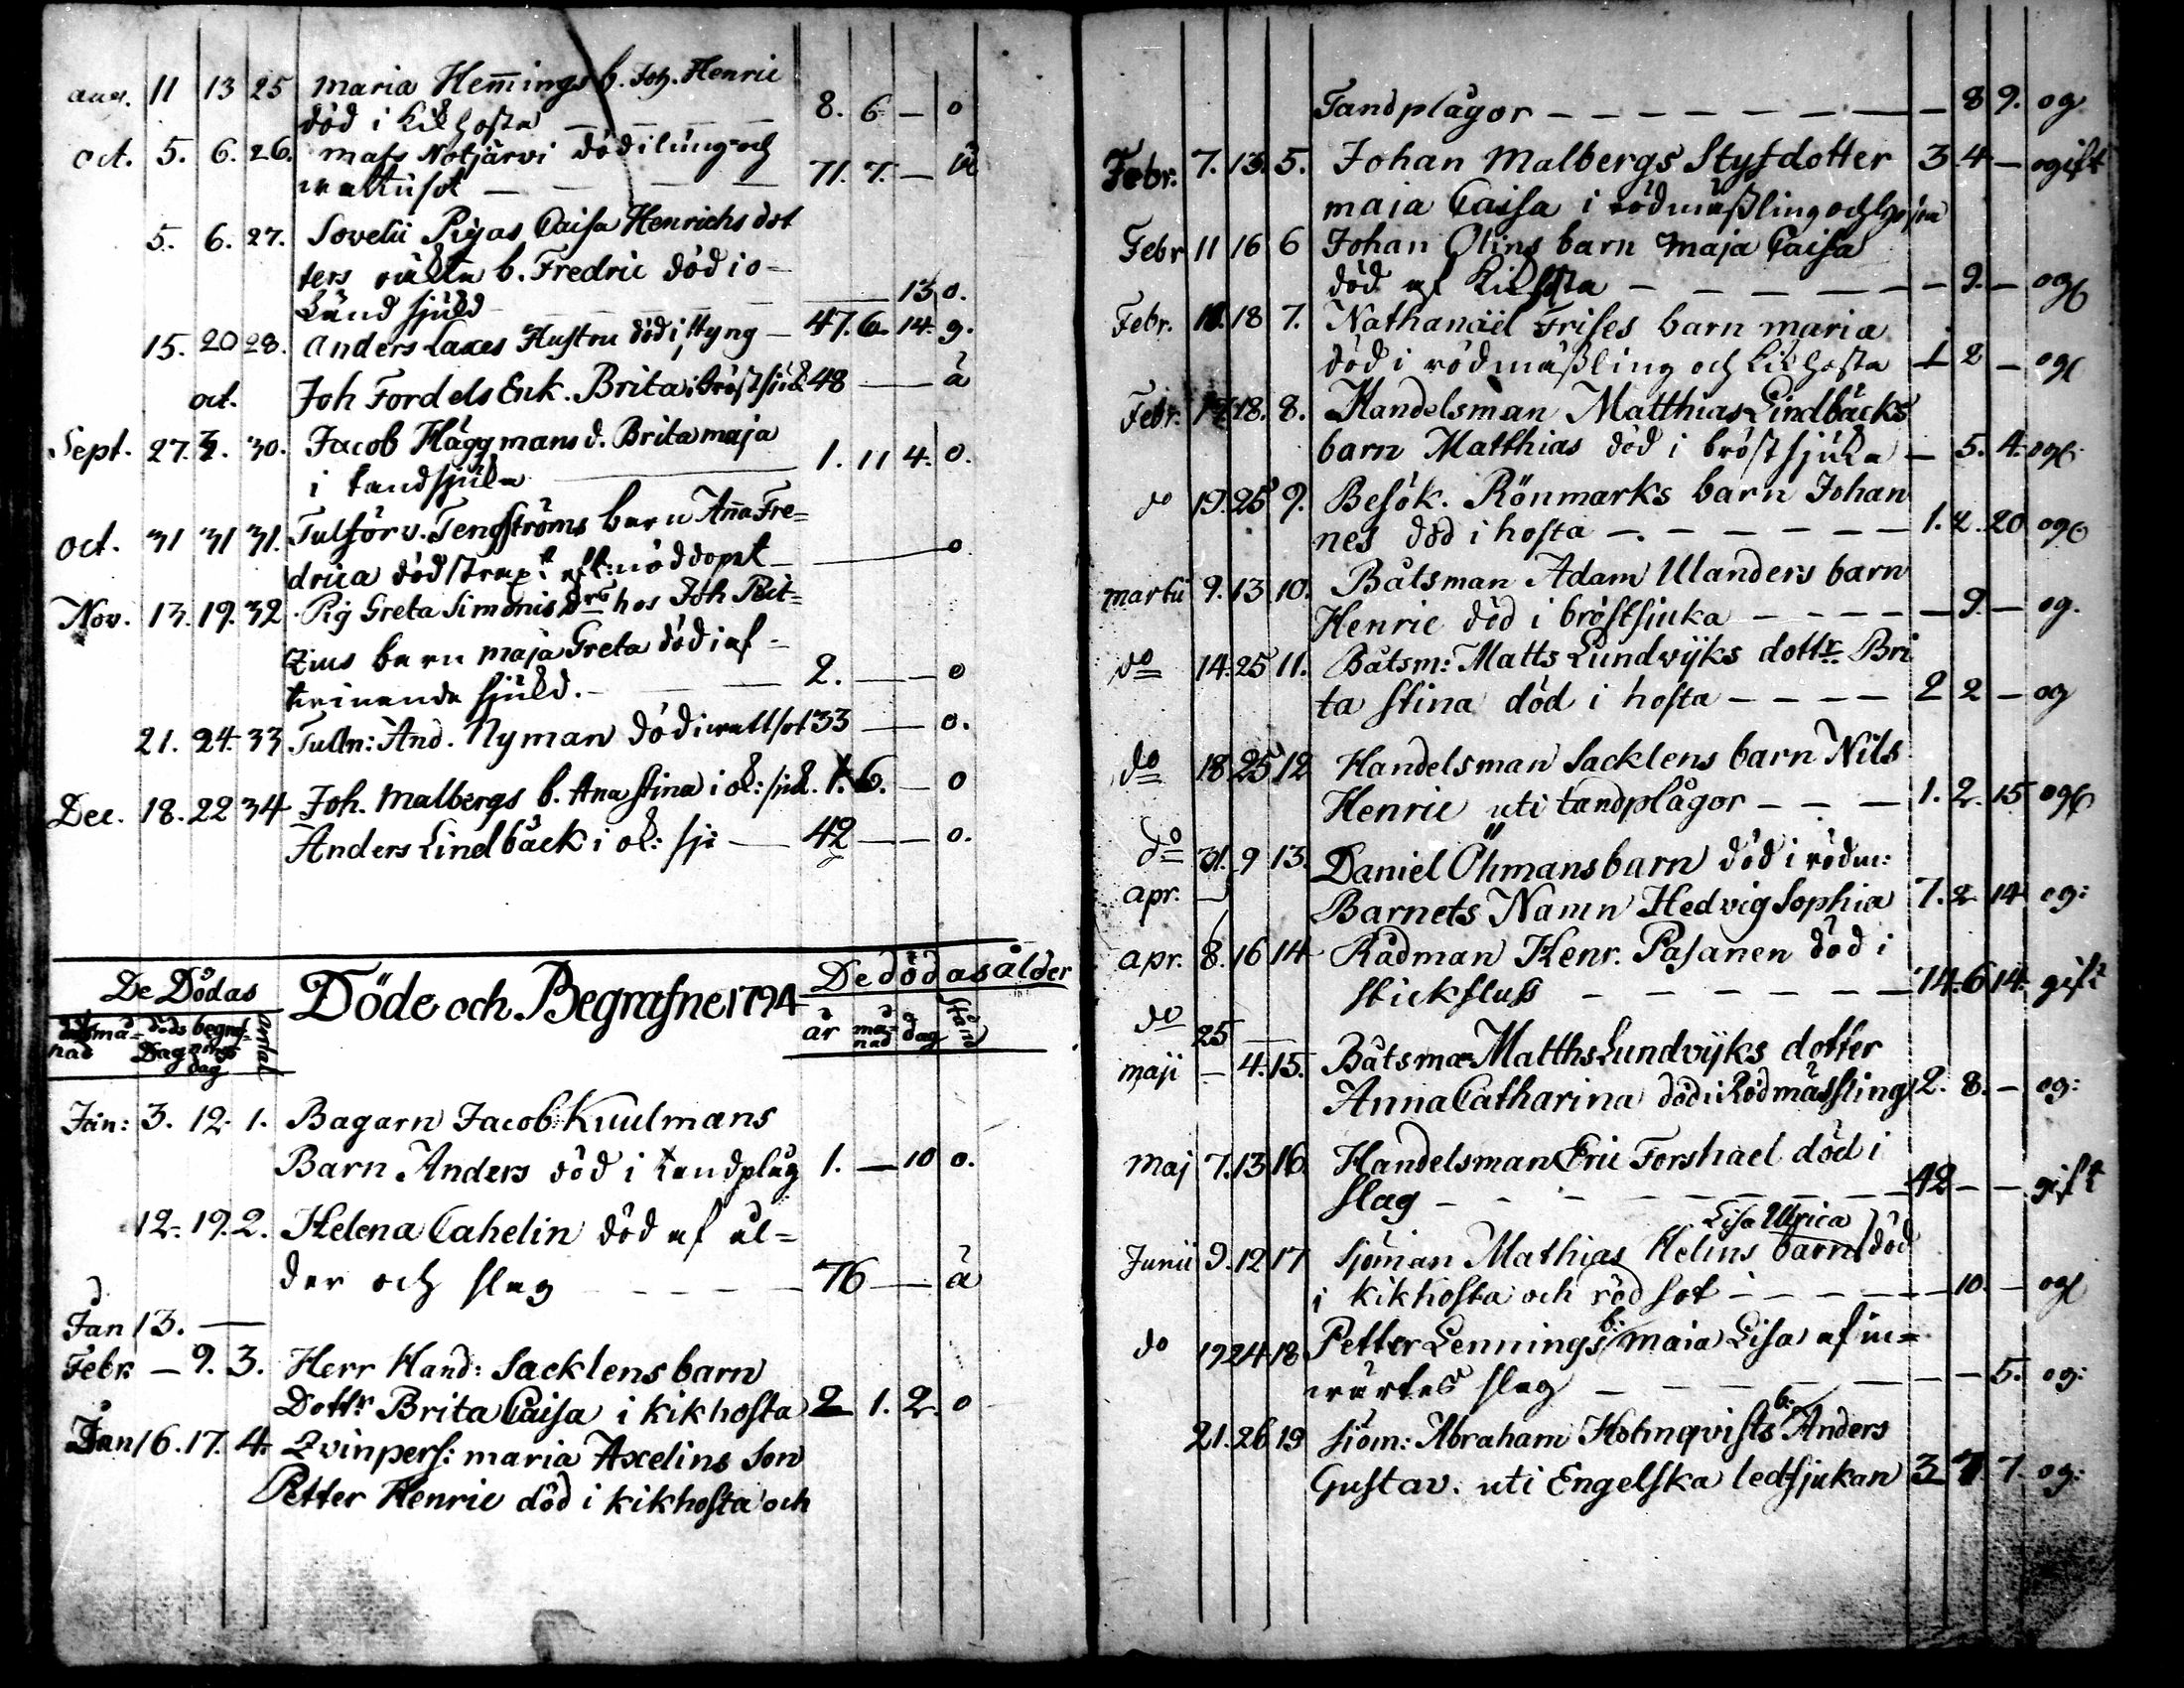 aug. 11 13 25 Maria Hemings b. Joh. Henric
död i kikhosta — — — 8. 6 — o
oct. 5. 6. 26. Mats Notjärvi död i lung- och
wattusot — — — 71. 7. —
5. 6. 27. Sovelii Pigas Caisa Henrichs dot
ters oäkta b. Fredric död i o-
känd sjukd — — 13 o.
15. 20 28. Anders Laxes Hustru död i styng — 47. 6. 14. g.
oct. Joh Fordels Enk. Brita i bröstsiuk 48 — — ä
Sept. 27. 30. Jacob Häggmans d. Brita maja
i tandsjuka — 1. 11 4. o.
oct. 31 31 31. Tulförv. Tengströms barn Anna Fre=
drica död strax eft: nöddopet — o.
Nov. 13. 19. 32. Pig Greta Simonis drs hos Joh
barn maja Greta död i af-
trinande sjukd. — — 2. — — o
21. 24. 33 Tulln: And. Nyman död i wattsot 33 — — o.
Dec. 18. 22 34 Joh. Malbergs b. Ana Stina i ok: siuk. 1. 6. — o
Anders Lindbäck i ok: sj: — 42 — — o.
De Dödas Döde och Begrafne 1794 De dödas ålder
månad döds Dag begrafnings dag antal år månad dag stånd
Jan: 3. 12. 1. Bagarn Jacob Kuulmans
Barn Anders död i tandplåg 1. — 10 o.
12. 19. 2. Helena Cahelin död af ål=
der och slag — — — 76 — ä
Jan 13. —
Febr. — 9. 3. Herr Hand: Sacklens barn
Dottr Brita Caisa i kikhosta 2 1. 2. o
Jan 16. 17. 4. Qvinpers: maria Axelins Son
Petter Henric död i kikhosta och
Tandplågor — — — — — 8 9. og
Febr. 7. 13. 5. Johan Malbergs Styfdotter 3 4 — ogift
maja Caisa i rödmäßling och hosta
Febr 11 16 6 Johan Olins barn Maja Caisa
död af kikhosta — — — — 9. — og
Febr. 18 7. Nathanäel Frises barn maria
död i rödmäßling och kikhosta 1 2 — og
Febr. 17 18. 8. Handelsman Matthias Lindbäcks
barn Matthias död i bröstsjuka — 5. 4. og
do 19. 25 9. Besök. Rönmarks barn Johan
nes död i hosta — — — — 1. 2. 20 og
martii 9. 13. 10. Båtsman Adam Ulanders barn
Henric död i bröstsiuka — — — — 9. — og.
do 14. 25 11. Båtsm: Matts Lundvijks dottr Bri
ta Stina död i hosta — — — — 2 2 — og
do 18 25 12 Handelsman Sacklens barn Nils
Henric uti tandplågor — — — 1. 2. 15 og
do 31. 9 13. Daniel Öhmans barn död i rödm:
apr. — Barnets Namn Hedvig Sophia 7. 2 14 og:
apr. 8. 16 14 Rådman Henr. Pasanen död i
stickfluss — — — — — 74. 6 14. gift
do 25 —
maji — 4. 15. Båtsman Matths Lundvijks dotter
Anna Catharina död i Rödmässling 2. 8. — og:
Maj 7. 13 16. Handelsman Eric Forshael död i
slag — — — — — — 42 — — gift
Lisa Ulrica
Junii 9. 12 17 Sjöman Mathias Helins barn död
i kikhosta och rödsot — — — — — 10. — og
do 19 24 18 Petter Lennings b: Maia Lisa af in=
wärtes slag — — — — — — 5. og:
21. 26 19 Siöm: Abraham Holmqvists b: Anders
Gustav. uti Engelska ledsjukan 3 7 7. og: